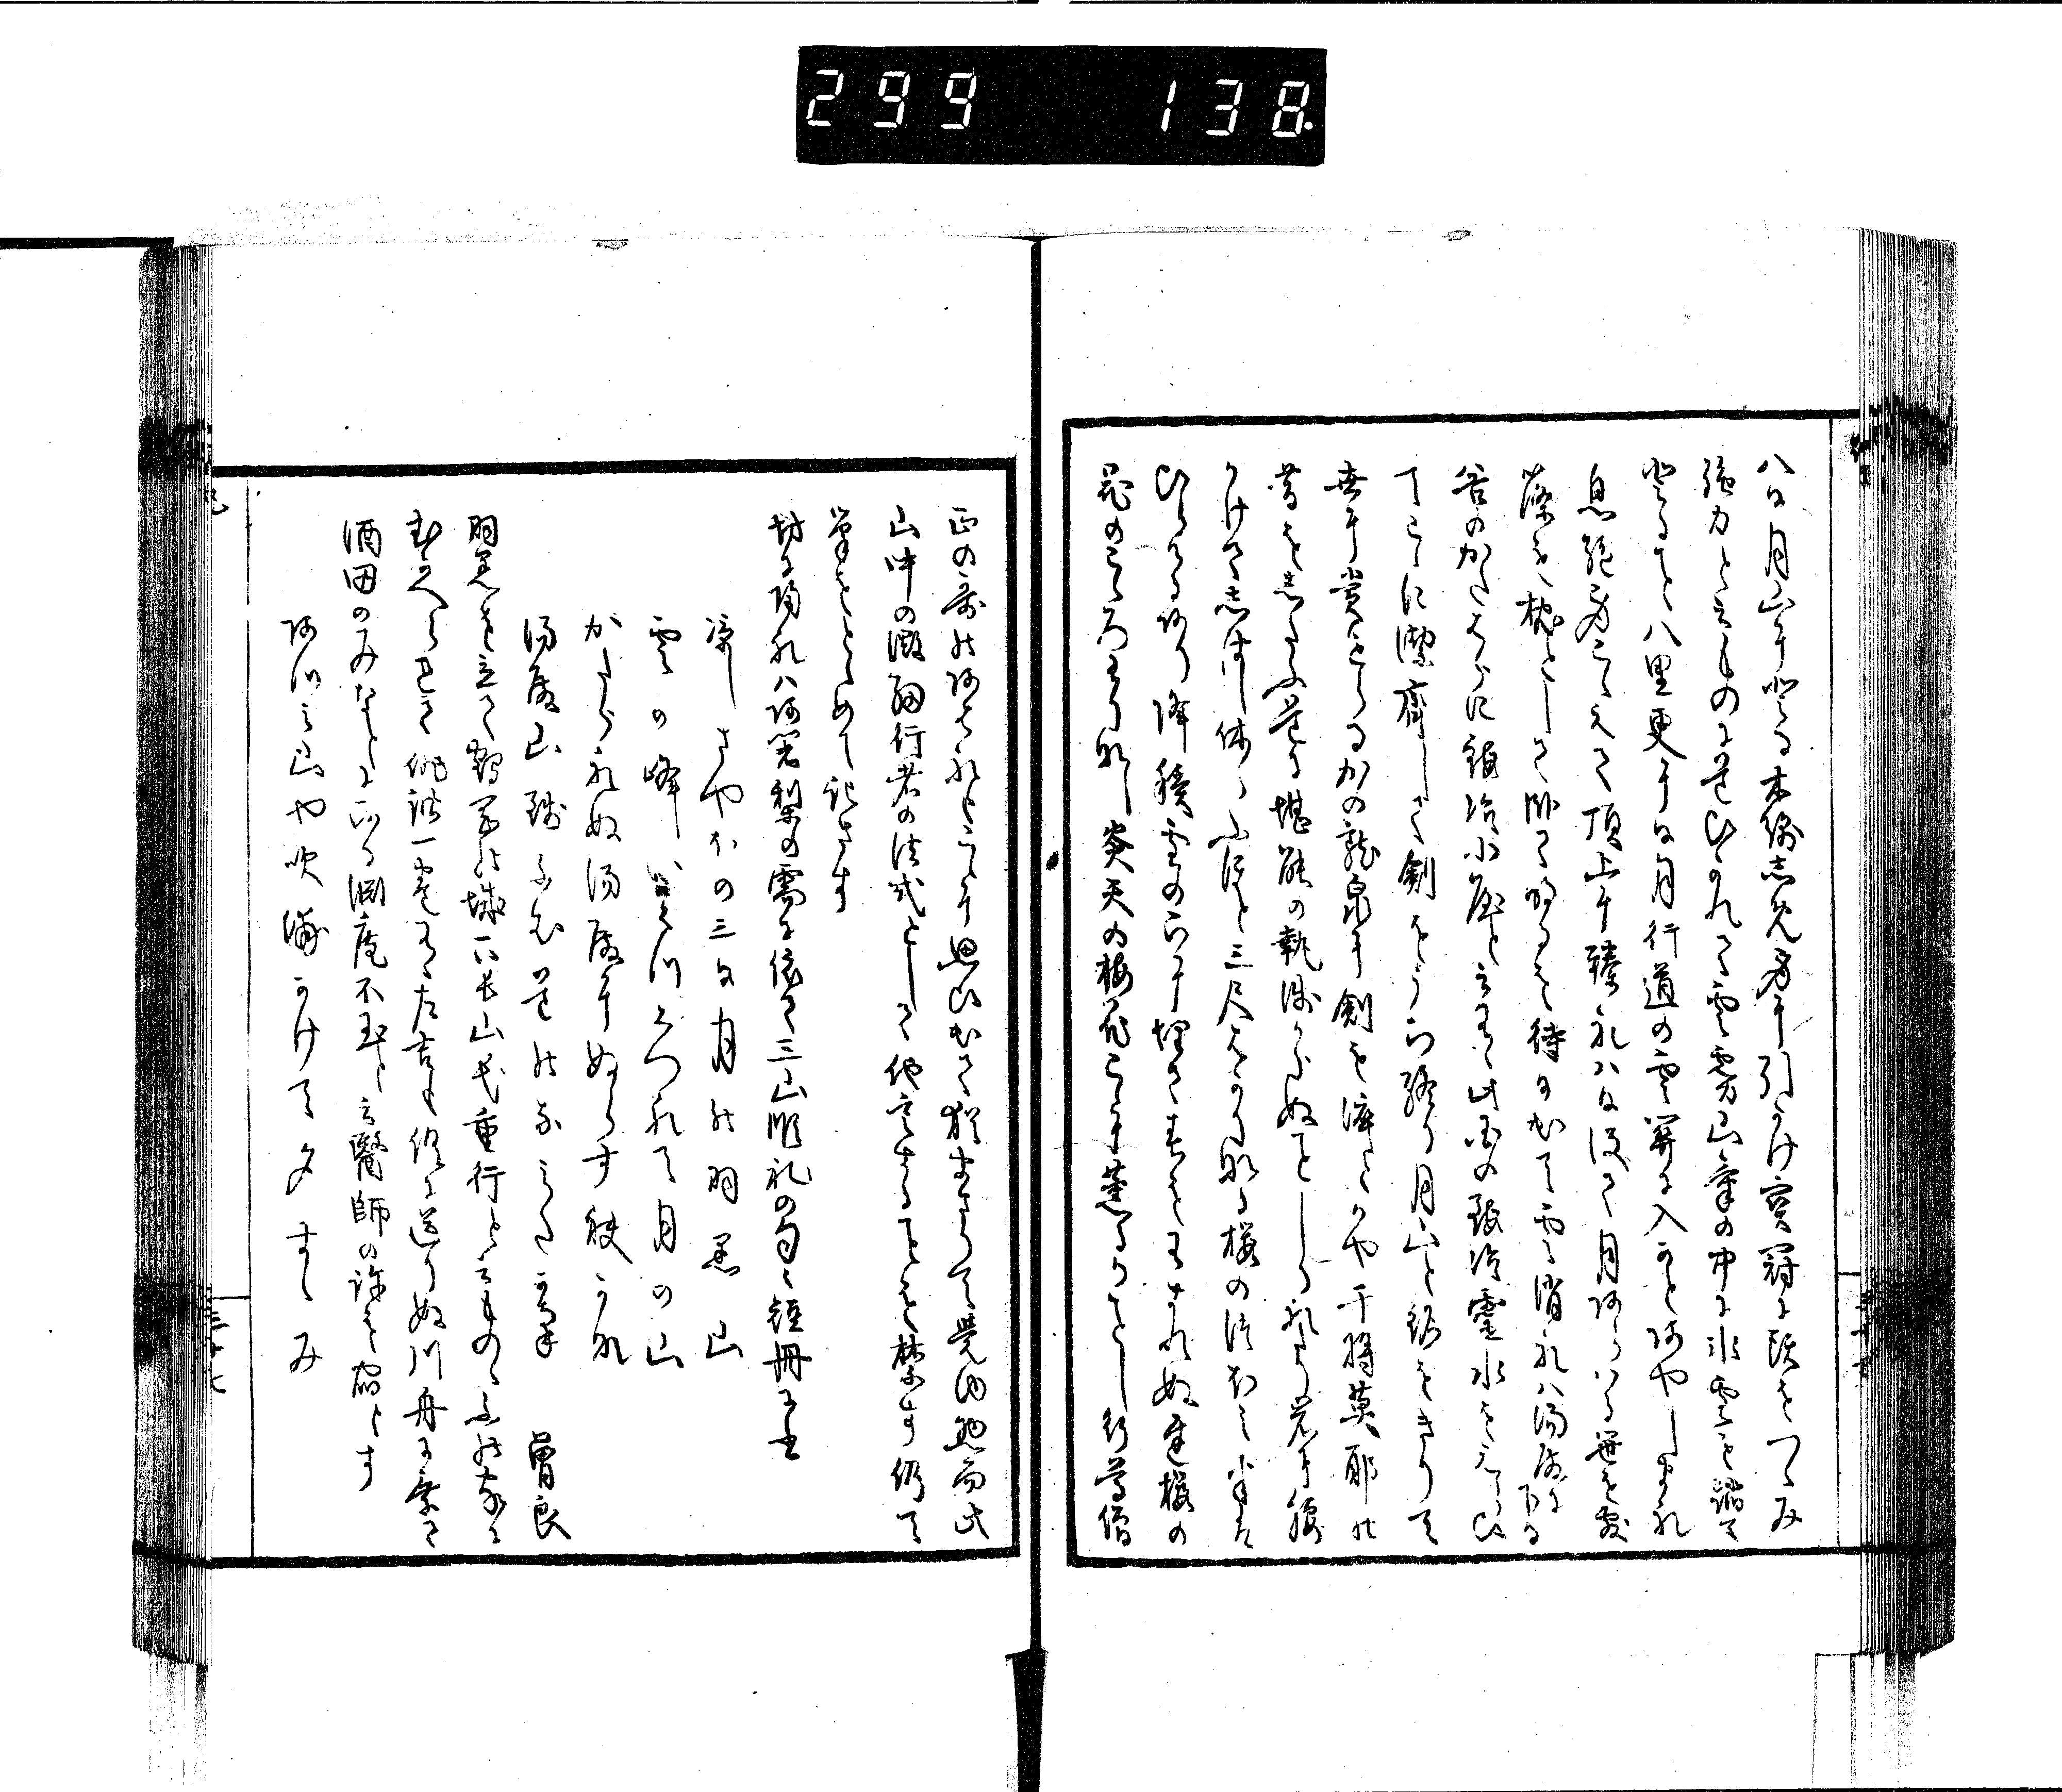 299 138
八日月山に登る木綿しめ身に引かけ宝冠に頭をつゝみ
強力と云ものに道ひかれて雲霧山気の中に氷雪を踏て
登ること八里更に日月行道の雲関に入かとあやしまれ
息絶身こゝえて頂上に臻れハ日没て月あらハる笹を敷
篠を枕として臥て明るを待日出て雲消れハ湯殿に下る
谷のかたはらに鍛冶小屋と云有此国の鍛冶霊水をえらひ
てこゝに潔斎して剣をうち終月山と銘をきりて
世に賞せらるかの龍泉に剣を淬とかや干将莫耶の
昔をしたふ道に堪能の執浅からぬことしられたり岩に腰
かけてしはし休らふほと三尺はかりなる桜の つほみ半は
ひらけるあり降積雪の下に埋て春をわすれぬ遅桜の
花のこゝろわりなし炎天の梅花こゝに薫るかことし行尊僧
正の哥のあはれもこゝに思ひ出て猶まさりて覚ゆ惣而此
山中の微細行者の法式として他言することを禁す仍て
筆をとゝめて記さす
坊に帰れハ阿闍梨の需に依て三山順礼の句々短冊に書
涼しさやほの三日月の羽黒山
雲の峰いくつくつれて月の山
かたられぬ湯殿にぬらす袂かな
湯殿山銭ふむ道の なみた 曽良
羽黒を立て鶴岡の城下長山氏重行と云ものゝふの家に
むかへられて俳諧一巻有左吉も供に送りぬ川舟に乗て
酒田のみなとに下る淵庵不玉と云医師の許を宿とす
あつみ山や吹浦かけて夕すゝみ
三十七